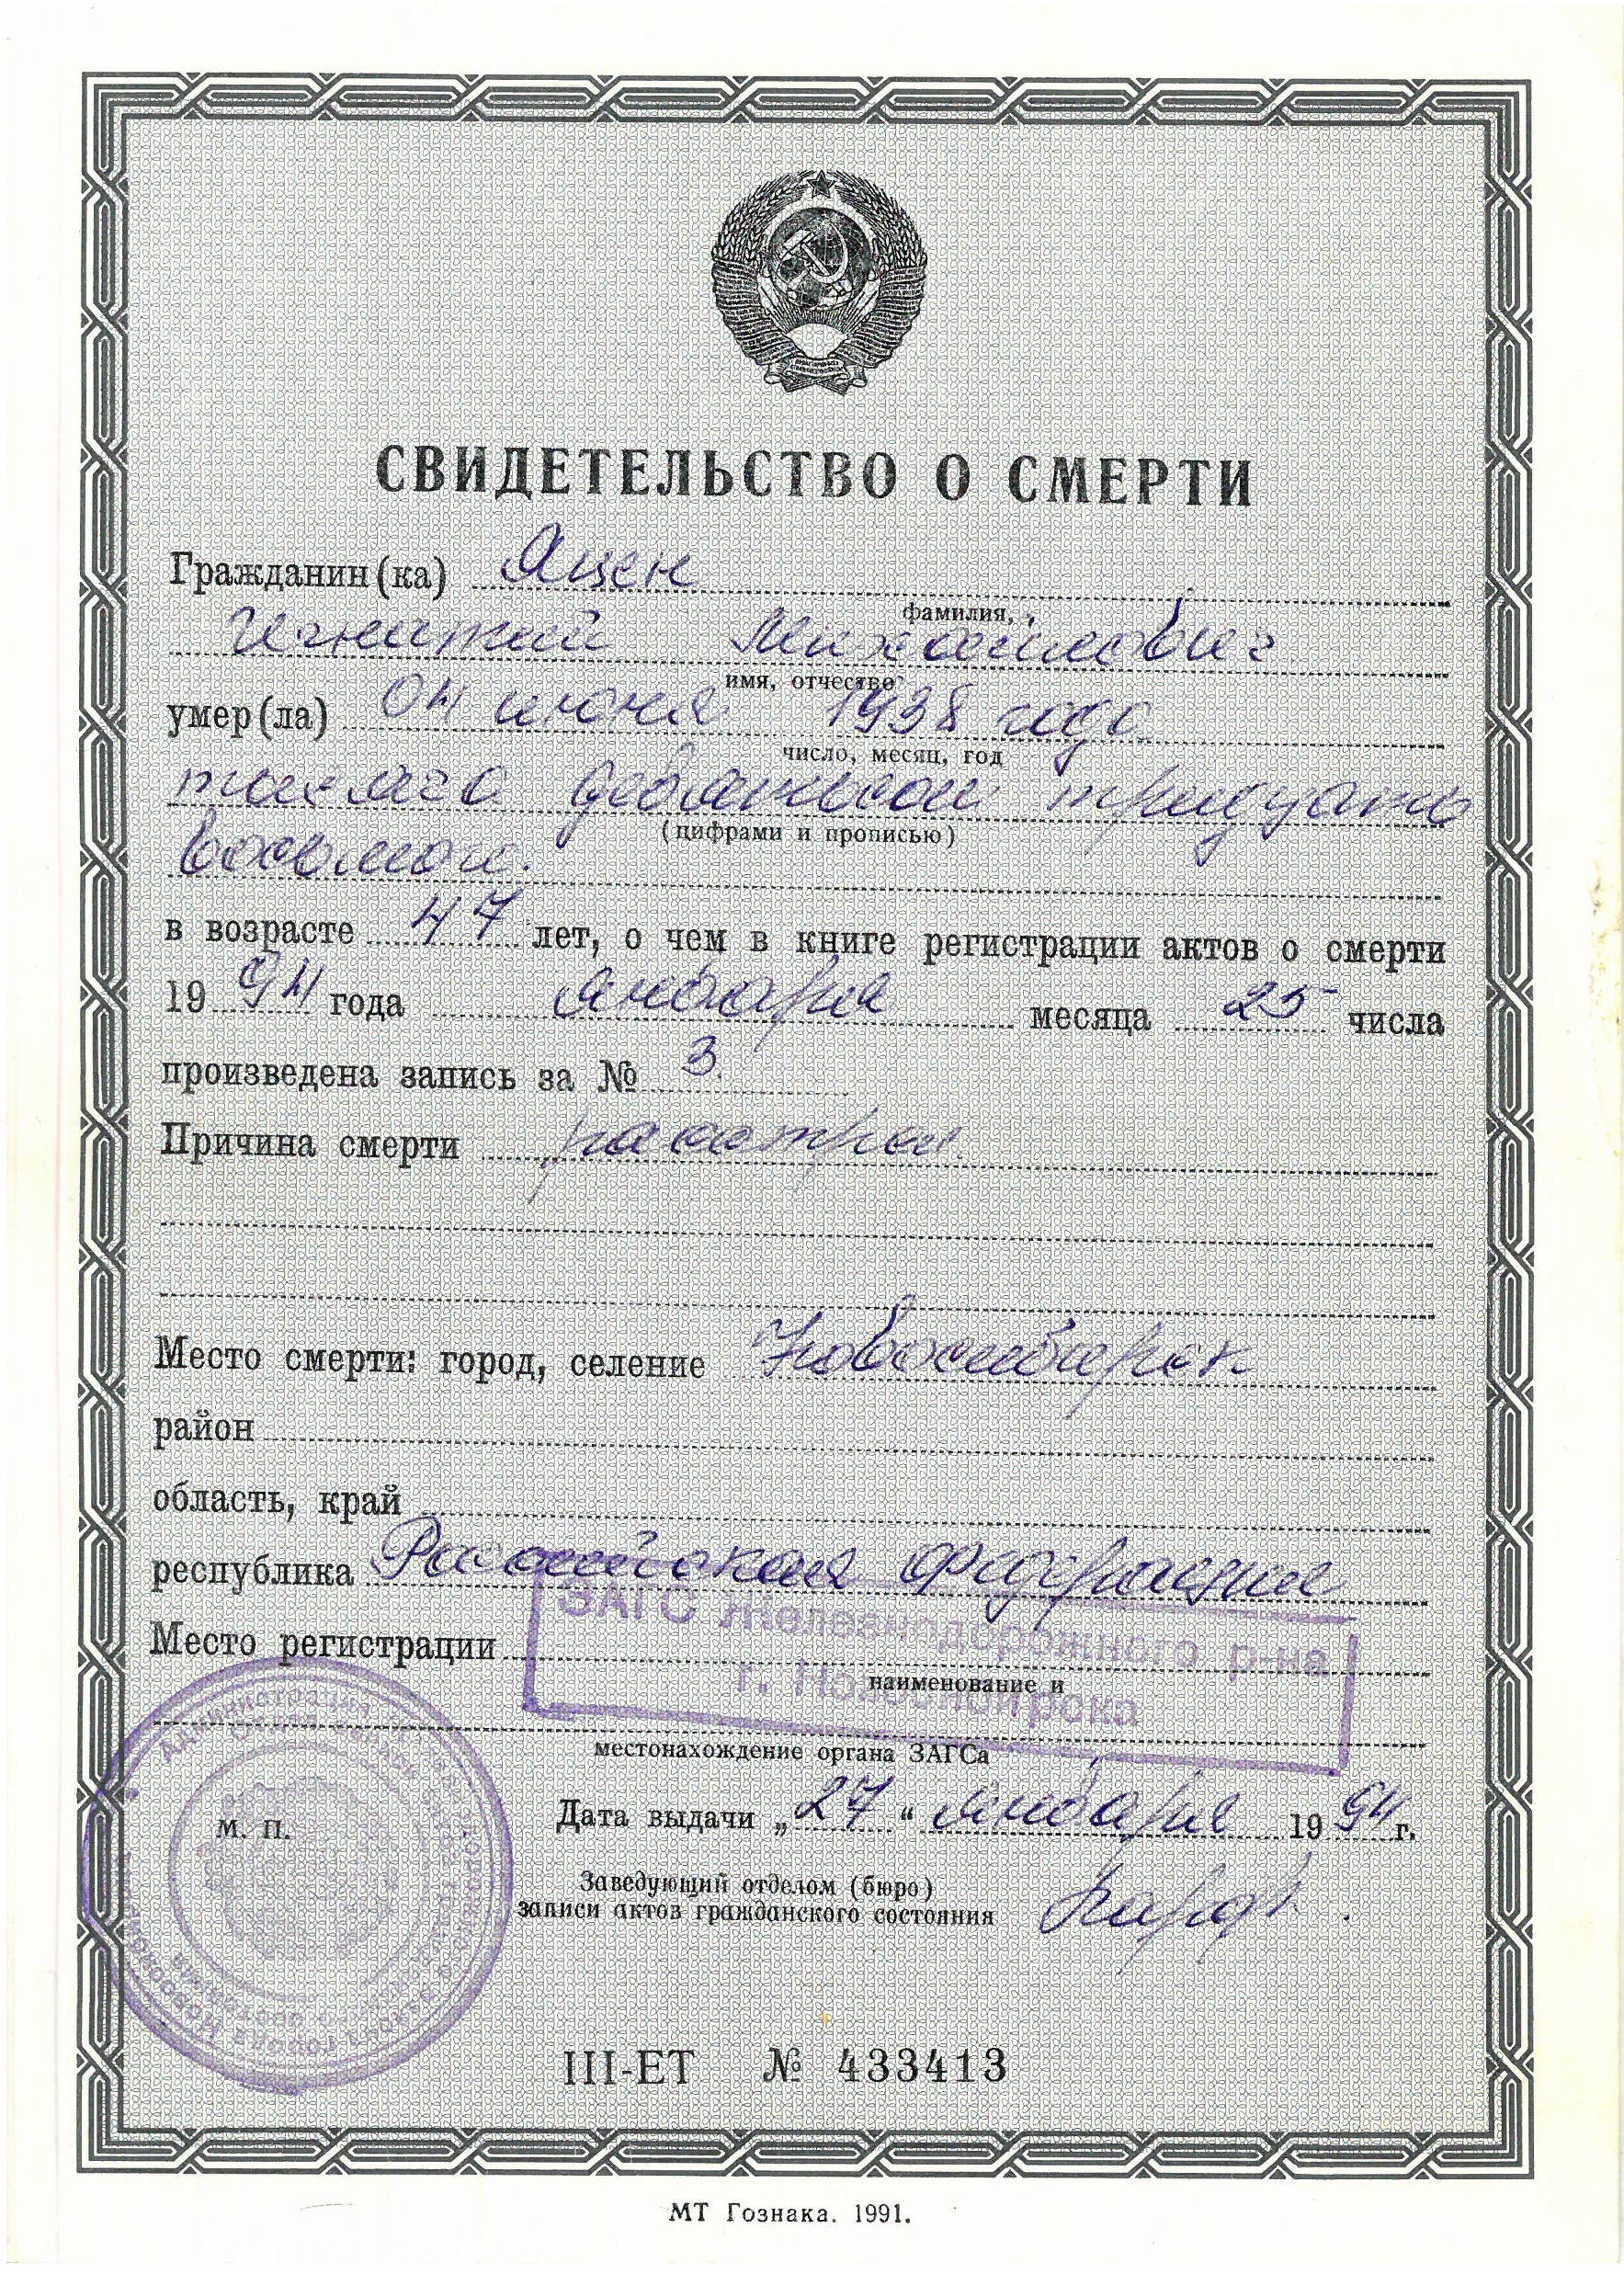 СВИДЕТЕЛЬСТВО О СМЕРТИ
Гражданин(ка) Яцен
фамилия,
Игнатий Михайлович
имя, отчество
умер(ла) 04 июня 1938 года
число, месяц, год
тысяча девятьсот тридцать
(цифрами и прописью)
восьмого.
в возрасте 47 лет, о чем в книге регистрации актов о смерти
1994 года января месяца 25 числа
произведена запись за № 3.
Причина смерти расстрел
Место смерти: город, селение Новосибирск
район
область, край
республика Российская Федерация
ЗАГС Железнодорожного р-на
Место регистрации
наименование и
г. Новосибирска
местонахождение органа ЗАГСа
Дата выдачи „27“ января 1994 г.
М. П.
Заведующий отделом (бюро)
записи актов гражданского состояния
III-ЕТ № 433413
МТ Гознака. 1991.